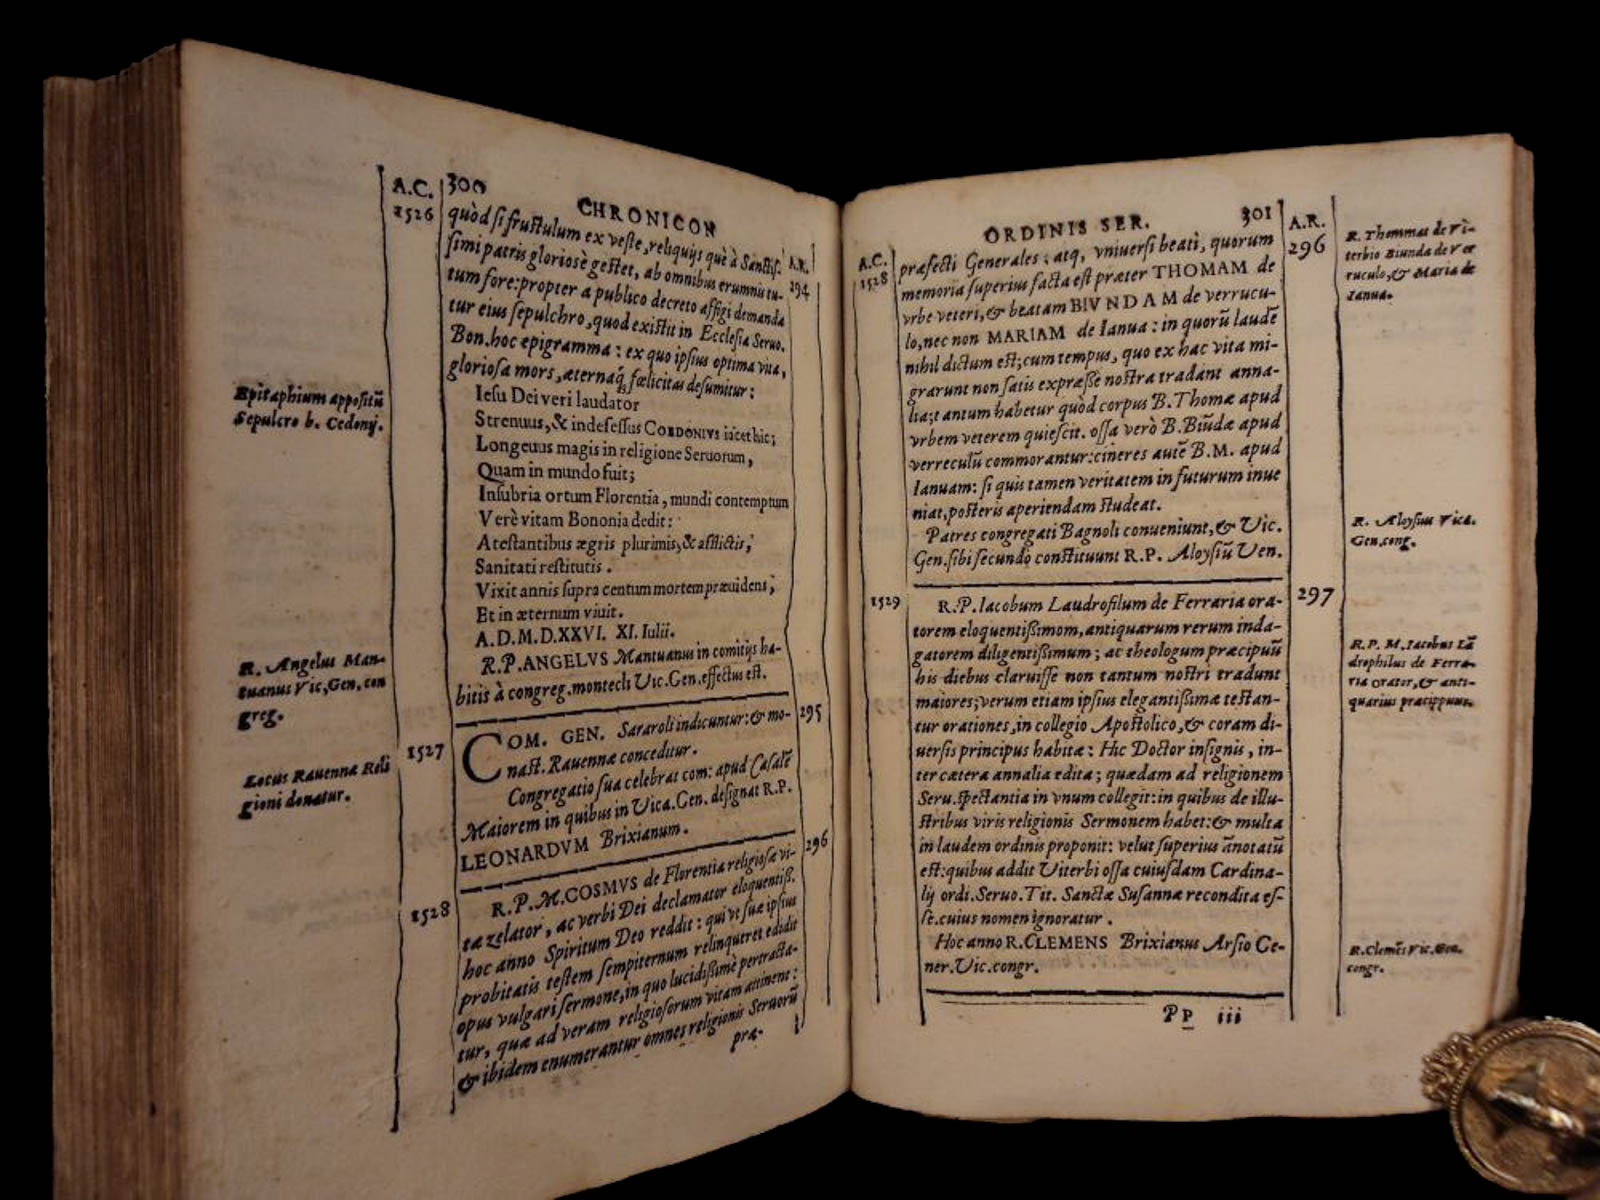 A.C. 300 CHRONICON
1526 quòd si frustulum ex veste, reliquijs què à Sanctis- A.R.
simi patris gloriosè gestet, ab omnibus erumnis tu- 294
tum fore: propter a publico decreto affigi demanda
tur eius sepulchro, quod existit in Ecclesia Seruo.
Bon. hoc epigramma: ex quo ipsius optima vita,
gloriosa mors, æternaq́; fœlicitas desumitur:
Epitaphium appositū
Sepulcro b. Cedonij.
Iesu Dei veri laudator
Strenuus, & indefessus CORDONIVS iacet hic;
Longeuus magis in religione Seruorum,
Quam in mundo fuit;
Insubria ortum Florentia, mundi contemptum
Verè vitam Bononia dedit:
Atestantibus ægris plurimis, & afflictis,
Sanitati restitutis.
Vixit annis supra centum mortem præuidens;
Et in æternum viuit.
A.D.M.D.XXVI. XI. Iulii.
R. Angelus Man-
tuanus Vic, Gen. con
greg.
R.P. ANGELVS Mantuanus in comitijs ha-
bitis à congreg. montecli Vic. Gen. effectus est.
1527 COM. GEN. Sararoli indicuntur: & mo- 295
nast. Rauennæ conceditur.
Locus Rauennæ Reli
gioni donatur.
Congregatio sua celebrat com: apud Casalē
Maiorem in quibus in Vica. Gen. designat R.P.
LEONARDVM Brixianum.
1528 R.P.M. COSMVS de Florentia religiosæ vi- 296
tæ zelator, ac verbi Dei declamator eloquentiss.
hoc anno Spiritum Deo reddit: qui vt suæ ipsius
probitatis testem sempiternum relinqueret edidit
opus vulgari sermone, in quo lucidissimè pertracta-
tur, quæ ad veram religiosorum vitam attinent:
& ibidem enumerantur omnes religionis Seruorū
præ-
ORDINIS SER. 301
A.C. A.R.
1528 præfecti Generales: atq, vniuersi beati, quorum 296
memoria superius facta est præter THOMAM de
vrbe veteri, & beatam BIVNDAM de verrucu-
lo, nec non MARIAM de Ianua: in quorū laudē
nihil dictum est; cum tempus, quo ex hac vita mi-
grarunt non satis expræssè nostra tradant anna-
lia; tantum habetur quòd corpus B. Thomæ apud
vrbem veterem quiescit. ossa verò B. Biūdæ apud
verreculū commorantur: cineres autē B.M. apud
Ianuam: si quis tamen veritatem in futurum inue
niat, posteris aperiendam studeat.
R. Thommas de Vi-
terbio Biunda de Ver
ruculo, & Maria de
Ianua.
Patres congregati Bagnoli conueniunt, & Vic.
Gen. sibi secundò constituunt R.P. Aloysiū Ven.
R. Aloysius Vica.
Gen. cong.
1529 R.P. Iacobum Laudrofilum de Ferraria ora- 297
torem eloquentissimom, antiquarum rerum inda-
gatorem diligentissimum; ac theologum præcipuū
his diebus claruisse non tantum nostri tradunt
maiores; verum etiam ipsius elegantissimæ testan-
tur orationes, in collegio Apostolico, & coram di-
uersis principus habitæ: Hic Doctor insignis, in-
ter cætera annalia edita; quædam ad religionem
Seru. spectantia in vnum collegit: in quibus de illu-
stribus viris religionis Sermonem habet: & multa
in laudem ordinis proponit: velut superius ānotatū
est: quibus addit Viterbi ossa cuiusdam Cardina-
lij ordi. Seruo. Tit. Sanctæ Susannæ recondita es-
se. cuius nomen ignoratur.
R.P.M. Iacobus Lā
drophilus de Ferra-
ria Orator, & anti-
quarius præcippuus.
Hoc anno R. CLEMENS Brixianus Arsio Ge-
ner. Vic. congr.
R. Clemēs Vic. Gen.
congr.
Pp iii